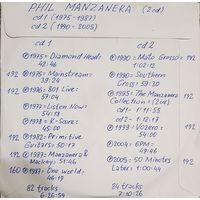 PHIL MANZANERA (2cd)
cd 1 (1975-1987)
cd 2 (1990-2005)
cd 1
℗1975= Diamond Head=
42:46
192 ℗1975= Mainstream=
39:24
192 ℗1976= 801 Live=
51:04
℗1977= Listen Now=
54:18
℗1978= K-Scope=
45:00
192 ℗1982= Primitive
Guitars= 50:17
192 ℗1987= Manzanera &
Mackay= 51:46
160 ℗1987= One World=
46:19
82 tracks
6:26:59
cd 2
℗1990= Mato Grosso= 192
1:03:12
℗1990= Southern
Cross= 59:30
℗1995= The Manzanera
Collection= (2cd) 192
cd1- 1:11:55
cd2- 1:12:17
℗1999= Vozero= 192
54:00
℗2004= 6PM=
49:46
℗2005= 50 Minutes 192
Later= 1:00:44
84 tracks
7:10:26